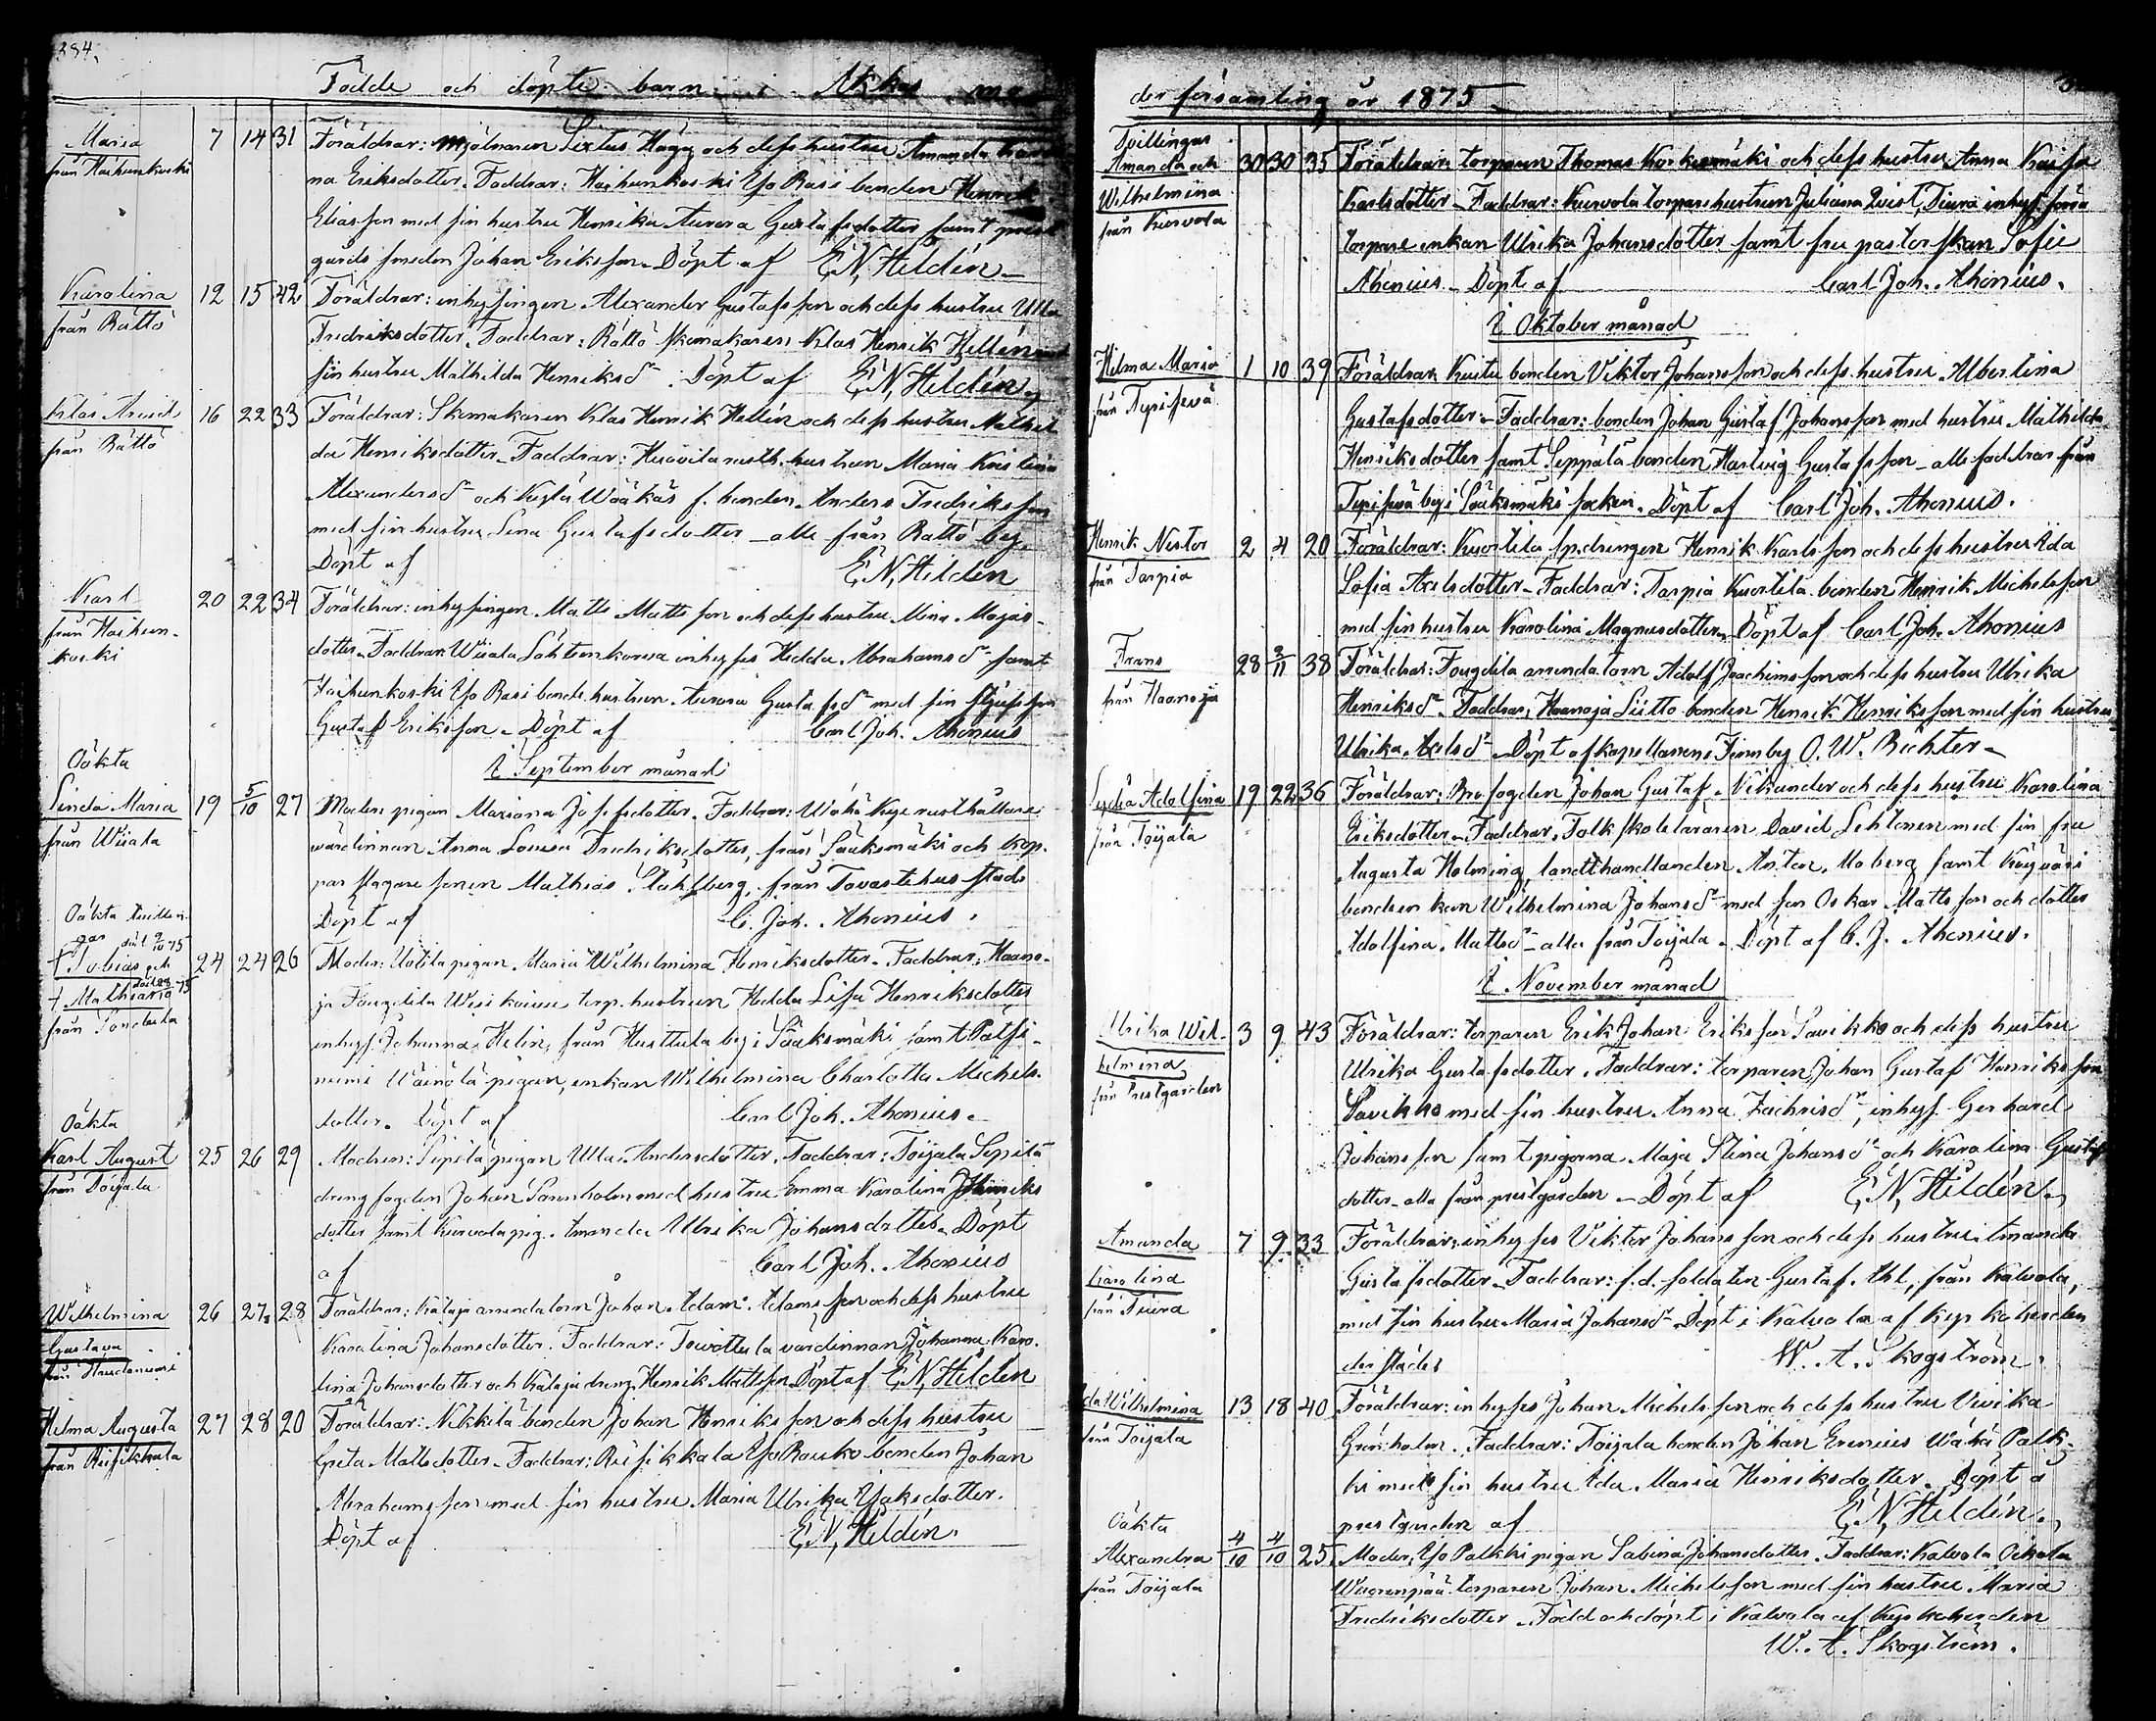 284.
Födde och döpte barn i Akkas mo
Maria 7 14 31 Föräldrar: Mjölnaren Sixtus Hägg och dess hustru Amanda Karo
från Haihunkoski na Eriksdotter. Faddrar: Haihunkoski Yso Rasi bonden Henrik
Eliasson med sin hustru Henrika Aurora Gustafsdotter samt prest
gårds smeden Johan Eriksson. Döpt af E. N. Heldén
Karolina 12 15 42 Föräldrar: inhysingen Alexander Gustafsson och dess hustru Ulla
från Rättö Fredriksdotter. Faddrar: Rättö skomakaren Klas Henrik Hellén med
sin hustru Mathilda Henriksdr. Döpt af E. N. Heldén
Klas Arvid 16 22 33 Föräldrar: Skomakaren Klas Henrik Hellén och dess hustru Mathil
från Rättö da Henriksdotter. Faddrar: rusth. hustrun Maria Kristina
Alexandersdr och Wääkäs f. bonden Anders Fredriksson
med sin hustru Lena Gustafsdotter alle från Rättö by.
Döpt af E. N. Heldén
Karl 20 22 34 Föräldrar: inhysingen Matts Mattsson och dess hustru Mina Majas-
från Haihun- dotter. Faddrar: Wiiala inhyses Hedda Abrahamsdr samt
koski Haihunkoski Yso Rasi bonde hustrun Aurora Gustafsdr med sin styfson
Gustaf Eriksson. Döpt af Carl Joh. Ahonius
I September månad
Oäkta
Linda Maria 19 5/10 27 Moder: pigan Mariana Josefsdotter. Faddrar: rusthållare
från Wiiala wärdinnan Anna Lovisa Fredriksdotter, från Sääksmäki och kop-
par slagare sonen Mathias Ståhlberg, från Tavastehus stad.
Döpt af C. Joh. Ahonius.
Oäkta tvillin-
gar död 9/10 75
† Tobias och 24 24 26 Moder: Uotila pigan Maria Wilhelmina Henriksdotter. Faddrar: Haano-
† Mathias död 75 ja Fougdila torp. hustrun Hedda Lisa Henriksdotter
från Sontula inhys. Johanna Helin, från Huittula by i Sääksmäki samt
niemi Wäinölä pigan, enkan Wilhelmina Charlotta Michels-
dotter. Döpt af Carl Joh. Ahonius.
Oäkta
Karl August 25 26 29 Modren: Sipilä pigan Ulla Andersdotter. Faddrar: Toijala Sipilä
från Toijala dreng fogden Johan med hustru Emma Karolina Henriks
dotter samt Kurvola pig. Amanda Ulrika Johansdotter. Döpt
af Carl Joh. Ahonius
Wilhelmina 26 27 28 Föräldrar: Kataja arrendatorn Johan Adam Adamsson och dess hustru
Gustava Karolina Johansdotter. Faddrar: värdinnan Johanna Karo-
från lina Johansdotter och Kataja dreng Henrik Mattsson. Döpt af E. N. Heldén
Hilma Augusta 27 28 20 Föräldrar: Nikkilä bonden Johan Henriksson och dess hustru
från Riisikkala Greta Mattsdotter. Faddrar: Riisikkala Yso Rouko bonden Johan
Abrahamsson med sin hustru Maria Ulrika Isaksdotter.
Döpt af E. N. Heldén.
der församling år 1875
Tvillingar
Amanda och 30 30 35 Föräldrar: torparen Thomas Korkeamäki och dess hustru Anna Kaisa
Wilhelmina Karlsdotter. Faddrar: Kurvola torpare hustrun Juliana Qvist, Tiura inhys. förra
från Kurvola torpare enkan Ulrika Johansdotter samt fru pastorskan Sofie
Ahonius. Döpt af Carl Joh. Ahonius.
I Oktober månad
Hilma Maria 1 10 39 Föräldrar: bonden Viktor Johansson och dess hustru Albertina
från Gustafsdotter. Faddrar: bonden Johan Gustaf Johansson med hustru Mathilda
Henriksdotter samt Seppälä bonden Hartvig Gustafsson alle faddrar från
by i Sääksmäki socken. Döpt af Carl Joh. Ahonius.
Henrik Nestor 2 4 20 Föräldrar: Kuortila sp. drengen Henrik Karlsson och dess hustru Ida
från Tarpia Sofia Axelsdotter. Faddrar: Tarpia Kuortila bonden Henrik Michelsson
med sin hustru Karolina Magnusdotter. Döpt af Carl Joh. Ahonius
Frans 28 2/11 38 Föräldrar: Fougdila arrendatorn Adolf Joachimsson och dess hustru Ulrika
från Haanoja Henriksdr. Faddrar: Haanoja Liitto bonden Henrik Henriksson med sin hustru
Ulrika Axelsdr. Döpt af kapellanen i Finnby O. W. Richter
Lydia Adolfina 19 22 36 Föräldrar: Brofogden Johan Gustaf Vikander och dess hustru Karolina
från Toijala Eriksdotter. Faddrar: Folkskoleläraren David Lehtonen med sin fru
Augusta Holming, landthandlanden Anton Moberg samt
bondeenkan Wilhelmina Johansdr med son Oskar Mattsson och dotter
Adolfina Mattsdr alla från Toijala. Döpt af C. J. Ahonius.
I November månad
Ulrika Wil- 3 9 43 Föräldrar: torparen Erik Johan Eriksson Savikko och dess hustru
helmina Ulrika Gustafsdotter. Faddrar: torparen Johan Gustaf Henriksson
från Prestgården Savikko med sin hustru Anna Zachrisdr, inhys. Gerhard
Johansson samt pigorna Maja Stina Johansdr och Karolina Gustafs
dotter alla från prestgården. Döpt af E. N. Heldén.
Amanda 7 9 33 Föräldrar: inhyses Viktor Johansson och dess hustru Amanda
Karolina Gustafsdotter. Faddrar: f.d. soldaten Gustaf Ahl, från Kalvola,
från Tiura med sin hustru Maria Johansdr. Döpt i Kalvola af Kyrkoherden
der städes W. A. Skogström.
Ida Wilhelmina 13 18 40 Föräldrar: inhyses Johan Michelsson och dess hustru Viivika
från Toijala Grönholm. Faddrar: Toijala bonden Johan Erenius Wähä Palk-
ki med sin hustru Ida Maria Henriksdotter. Döpt å
prestgården af E. N. Heldén.
Oäkta
Alexandra 4/10 4/10 25 Moder: Yso Palkki pigan Sabina Johansdotter. Faddrar: Kalvola
från Toijala Wuorenpää torparen Johan Michelsson med sin hustru Maria
Fredriksdotter. Född och döpt i Kalvola af Kyrkoherden
W. A. Skogström.